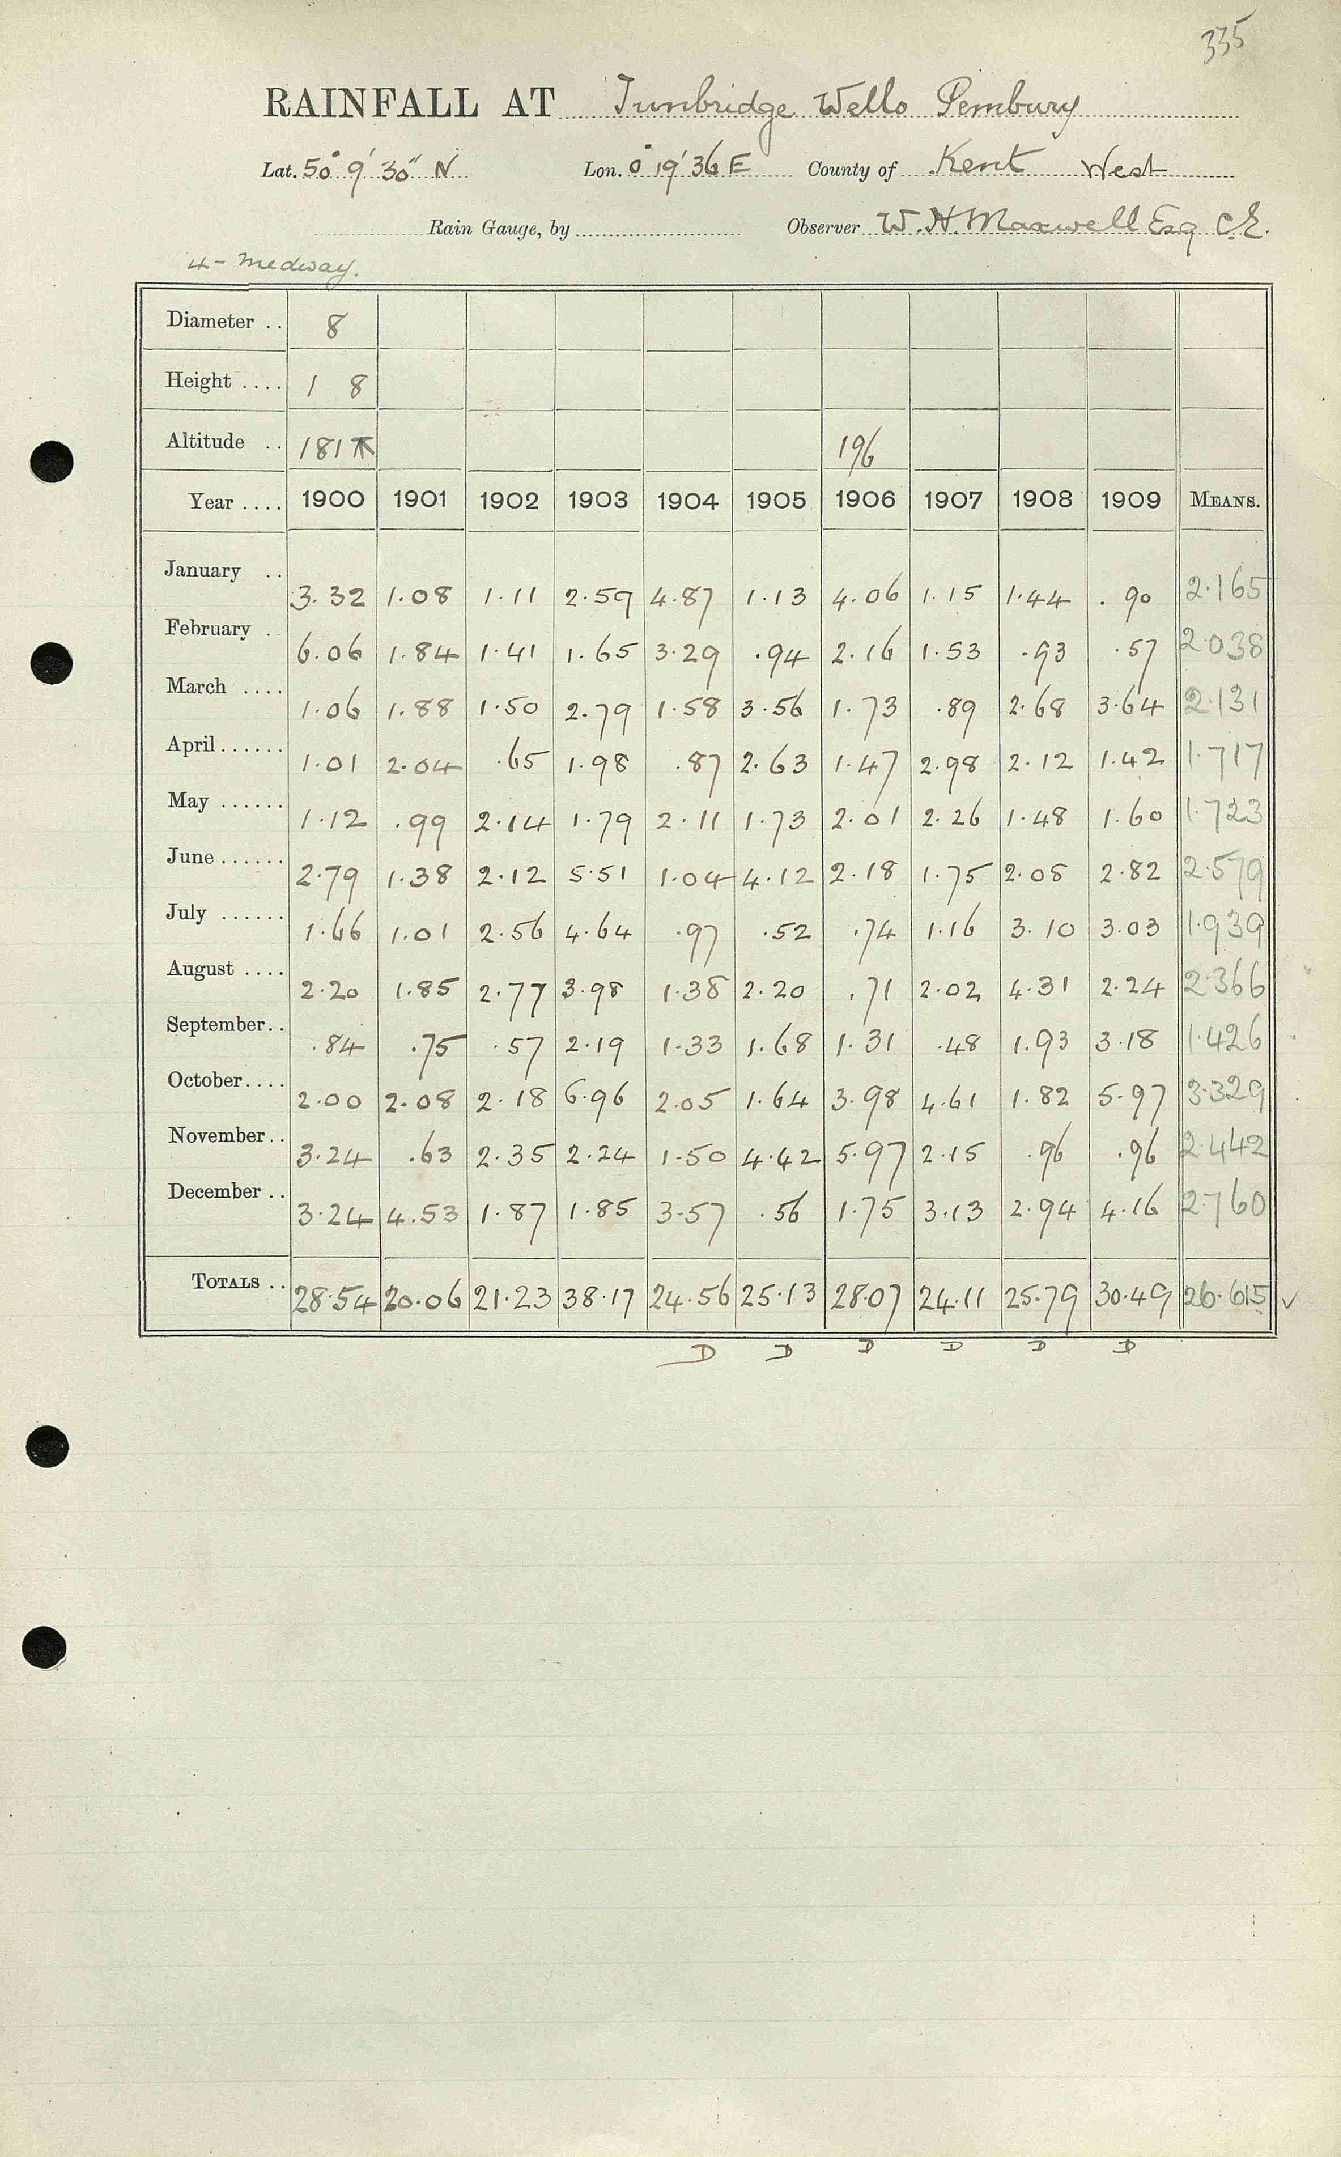 335
RAINFALL AT Tunbridge Wells Pembury
Lat. 50° 9' 30" N Lon. 0° 19' 36 E County of Kent West
Rain Gauge, by Observer W. H. Maxwell Esq C.E.
4 - Medway.
Diameter .. 8
Height .... 1 8
Altitude .. 181 196
Year .... 1900 1901 1902 1903 1904 1905 1906 1907 1908 1909 MEANS.
January .. 3.32 1.08 1.11 2.59 4.87 1.13 4.06 1.15 1.44 .90 2.165
February . 6.06 1.84 1.41 1.65 3.29 .94 2.16 1.53 .93 .57 2.038
March .... 1.06 1.88 1.50 2.79 1.58 3.56 1.73 .89 2.68 3.64 2.131
April ...... 1.01 2.04 .65 1.98 .87 2.63 1.47 2.98 2.12 1.42 1.717
May ...... 1.12 .99 2.14 1.79 2.11 1.73 2.01 2.26 1.48 1.60 1.723
June ...... 2.79 1.38 2.12 5.51 1.04 4.12 2.18 1.75 2.08 2.82 2.579
July ...... 1.66 1.01 2.56 4.64 .97 .52 .74 1.16 3.10 3.03 1.939
August .... 2.20 1.85 2.77 3.98 1.38 2.20 .71 2.02 4.31 2.24 2.366
September.. .84 .75 .57 2.19 1.33 1.68 1.31 .48 1.93 3.18 1.426
October.... 2.00 2.08 2.18 6.96 2.05 1.64 3.98 4.61 1.82 5.97 3.329
November.. 3.24 .63 2.35 2.24 1.50 4.42 5.97 2.15 .96 .96 2.442
December .. 3.24 4.53 1.87 1.85 3.57 .56 1.75 3.13 2.94 4.16 2.760
TOTALS .. 28.54 20.06 21.23 38.17 24.56 25.13 28.07 24.11 25.79 30.49 26.615 ✓
D D D D D D